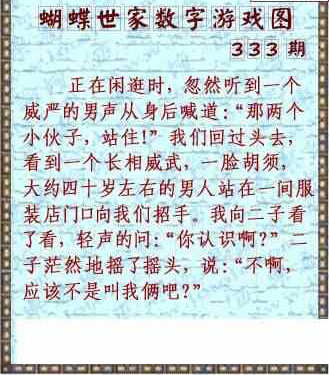 蝴蝶世家数字游戏图
333期
正在闲逛时，忽然听到一个
威严的男声从身后喊道：“那两个
小伙子，站住!”我们回过头去，
看到一个长相威武，一脸胡须，
大约四十岁左右的男人站在一间服
装店门口向我们招手。我向二子看
了看，轻声的问：“你认识啊？”二
子茫然地摇了摇头，说：“不啊，
应该不是叫我俩吧？”